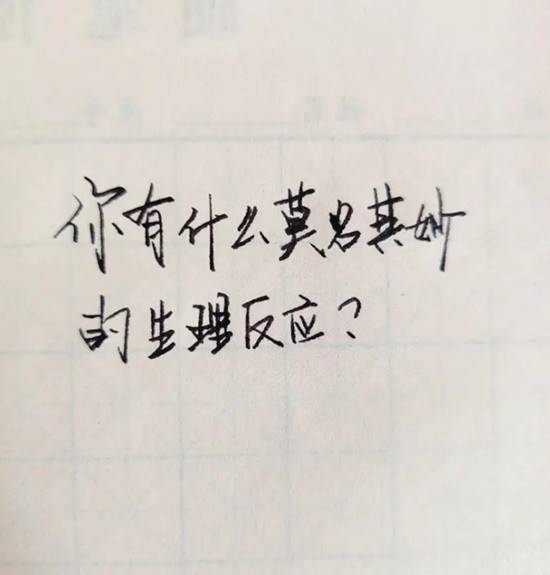 你有什么莫名其妙
的生理反应?